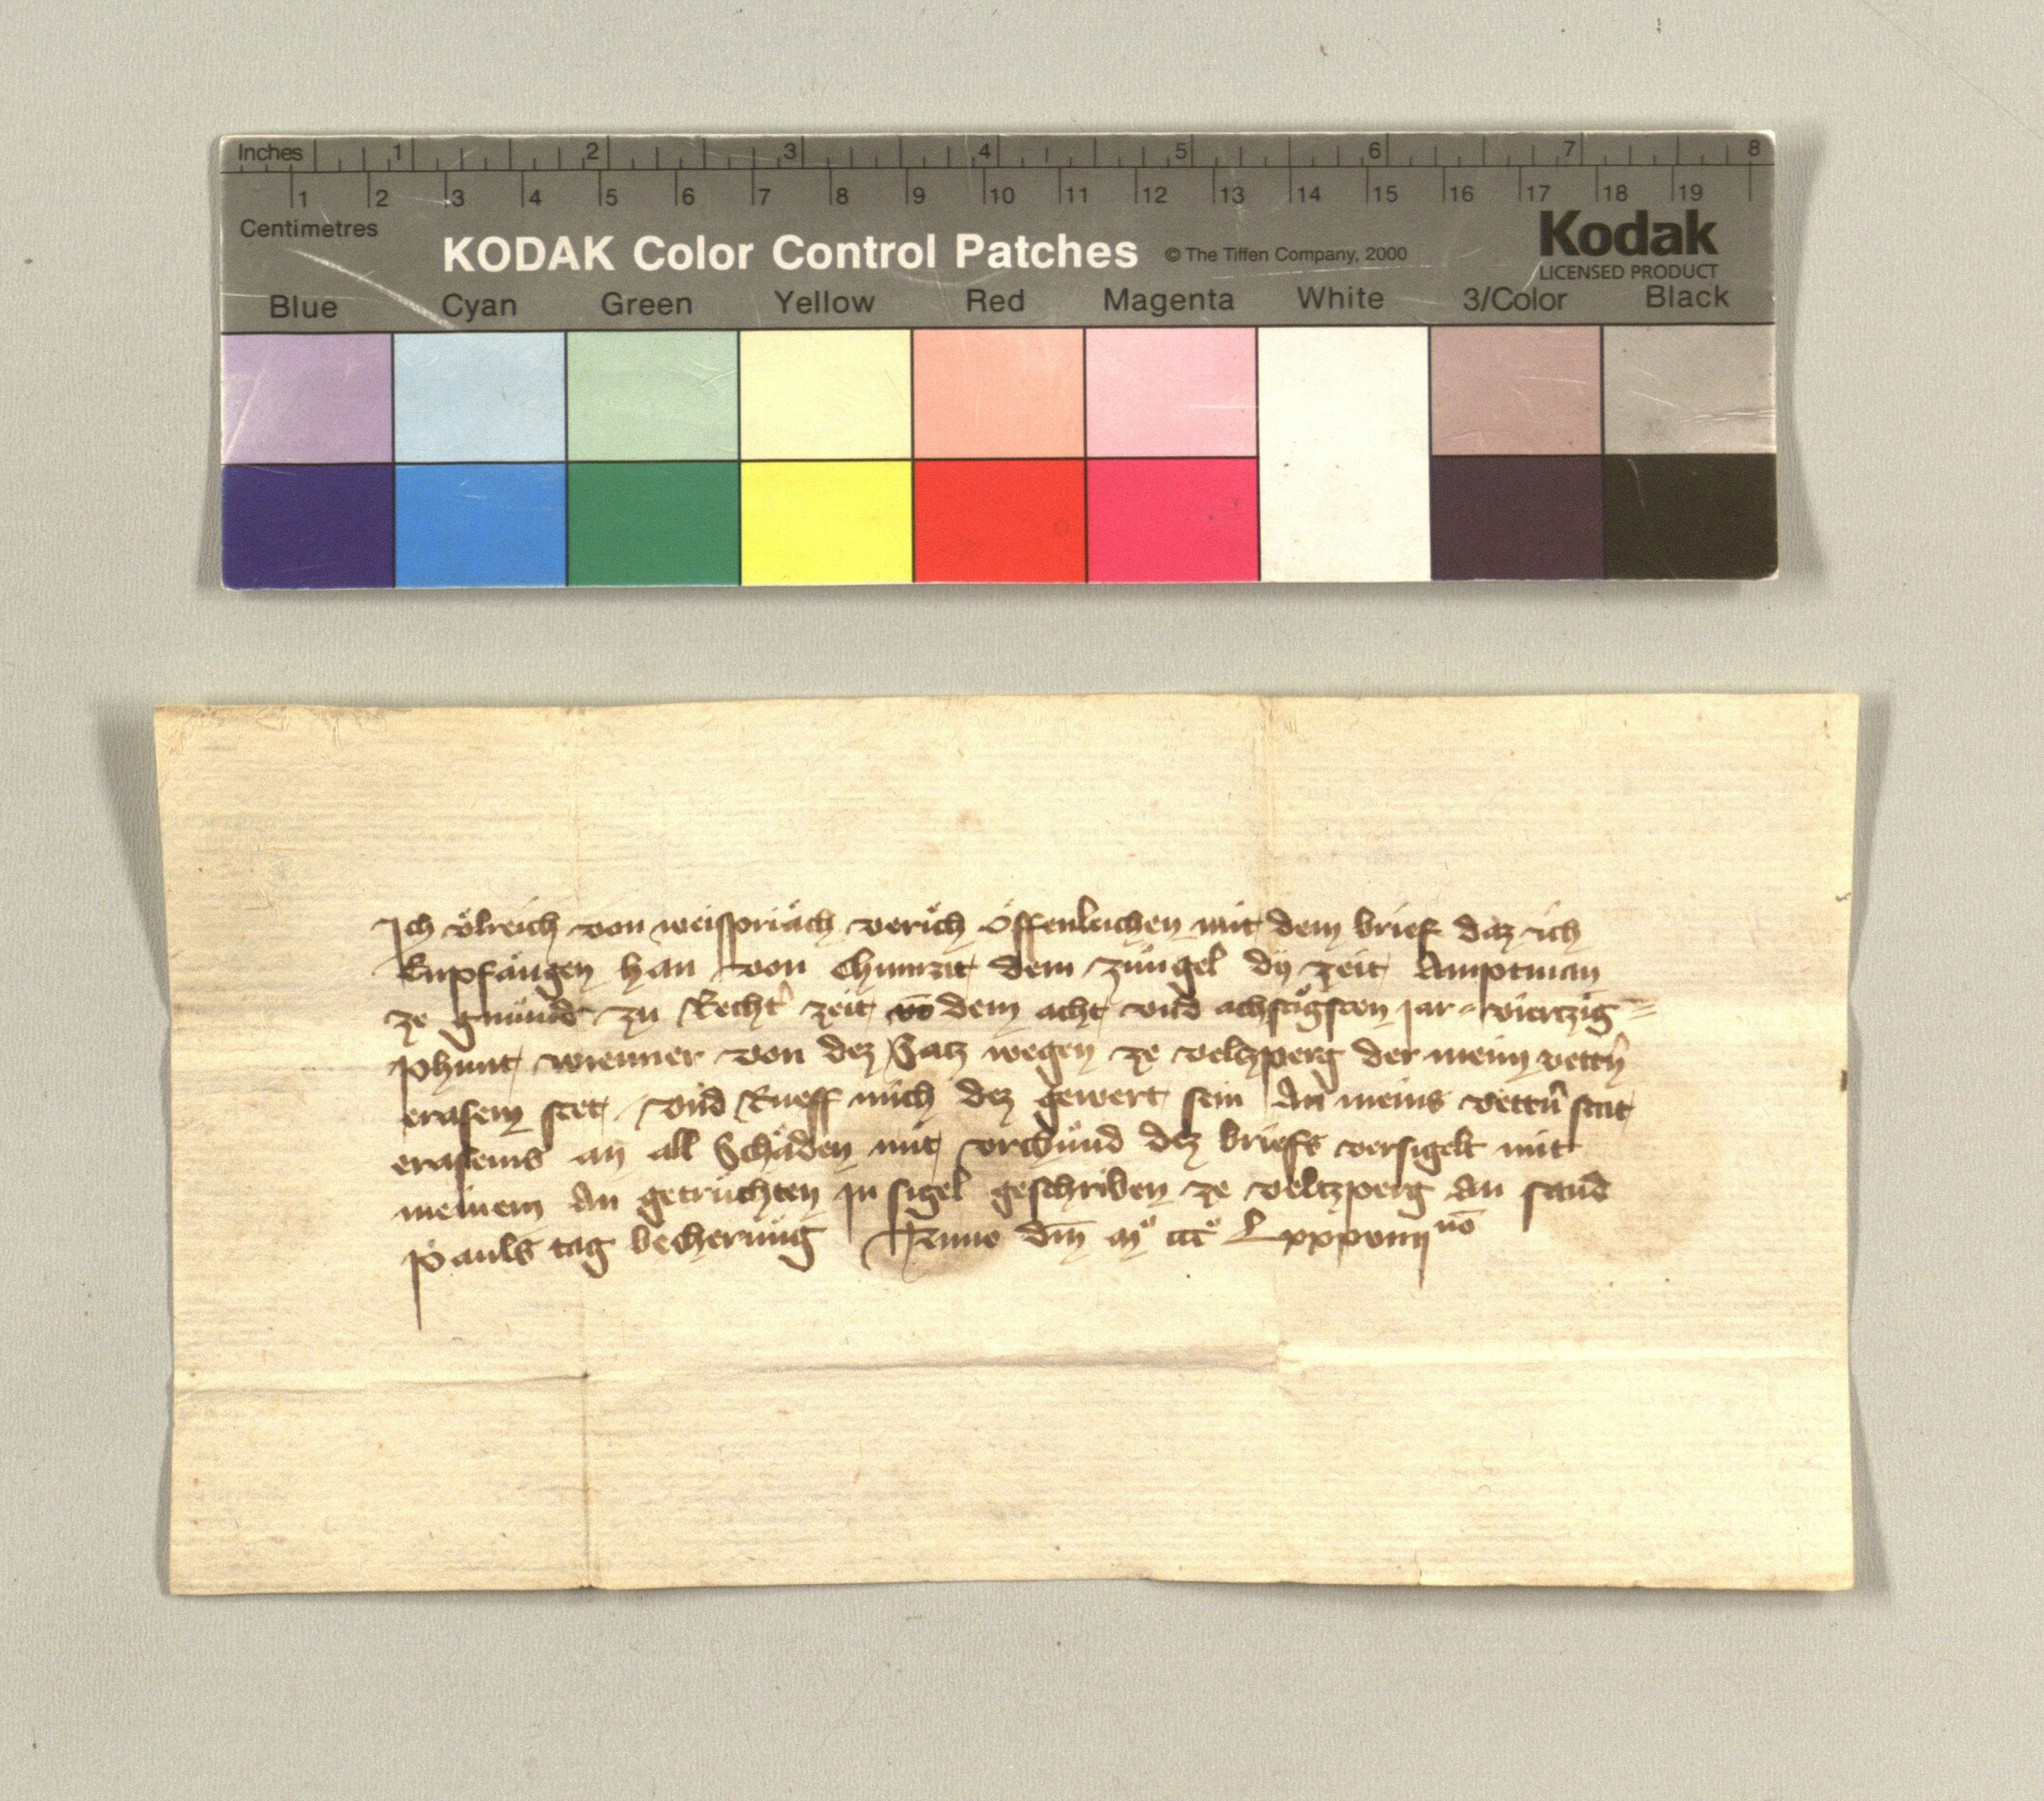 Inches 1 2 3 4 5 6 7 8
1 2 3 4 5 6 7 8 9 10 11 12 13 14 15 16 17 18 19
Centimetres
KODAK Color Control Patches © The Tiffen Company, 2000
Kodak
LICENSED PRODUCT
Blue Cyan Green Yellow Red Magenta White 3/Color Black
Ich ölreich von weispriäch verich öffenleichen mit dem brief daz ich
Enpfangen han von Chunrat dem zungel dy zeit Amptman
ze gmünd zu Recht zeit vō dem acht vnd achtzigsten jar viertzig
phunt wienner von dez Satz wegen ze veltzperg der meim vettn̄
erasem stet vnd Rueff mich dez gewert sein An meins vettn̄ stat
erasems an all Schäden mit vrchünd dez briefs versigelt mit
meinem An getruchten in sigel geschriben ze veltzperg An sand
pauls tag becherung Anno dm̄ mº cccº Lxxxviiij nō